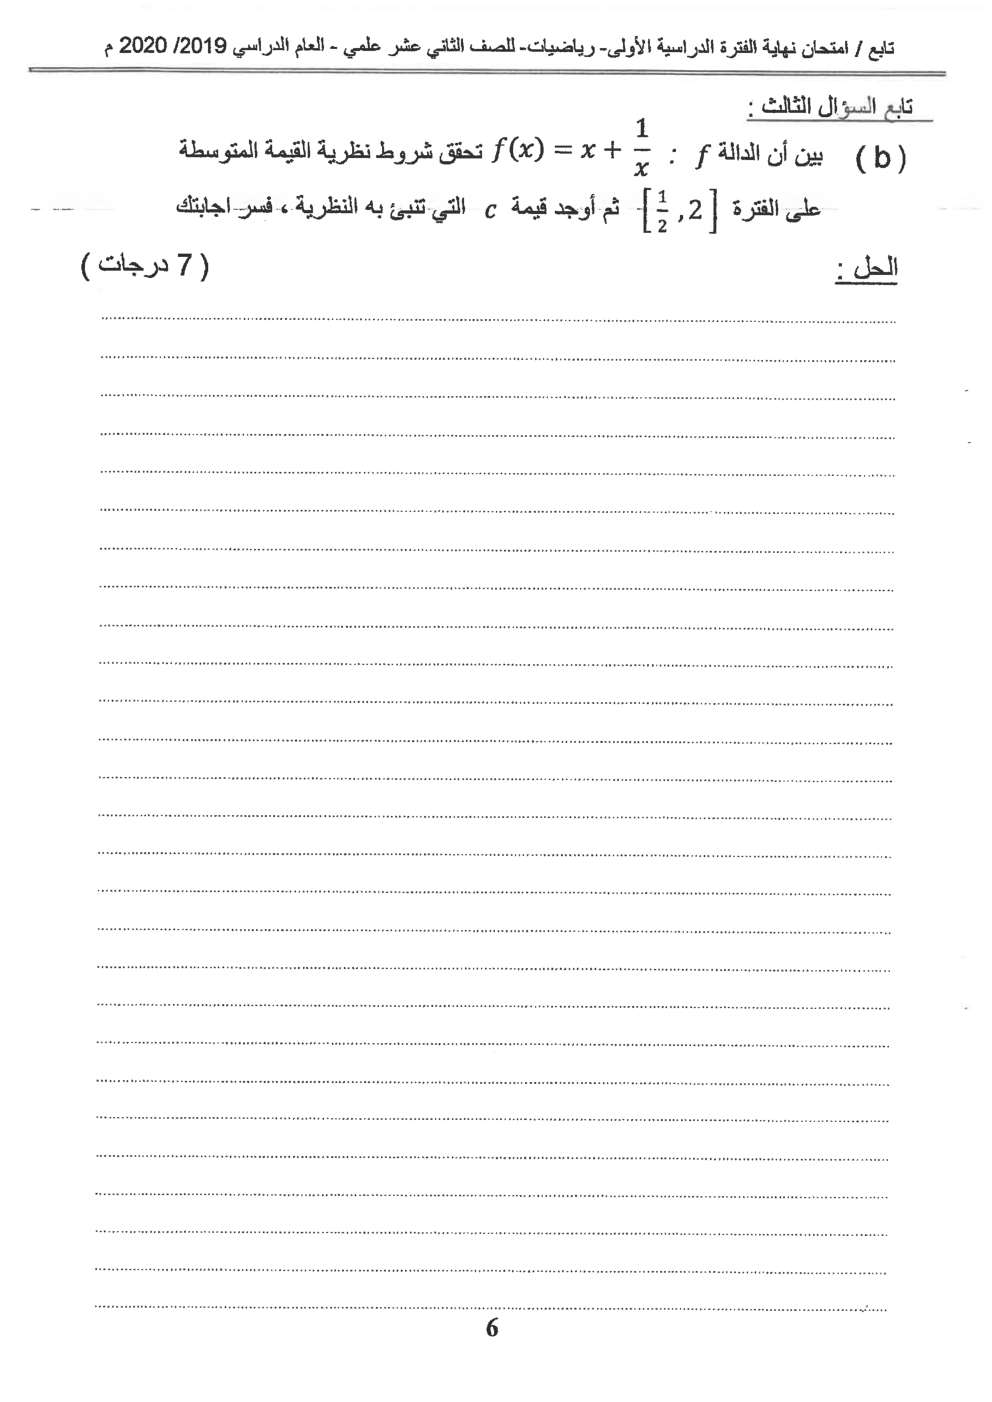 تابع / امتحان نهاية الفترة الدراسية الأولى- رياضيات- للصف الثاني عشر علمي - العام الدراسي 2019/ 2020 م
تابع السؤال الثالث :
( b ) بين أن الدالة f : f(x) = x + 1/x تحقق شروط نظرية القيمة المتوسطة
على الفترة [1/2 , 2] ثم أوجد قيمة c التي تنبئ به النظرية ، فسر اجابتك
الحل : ( 7 درجات )
6